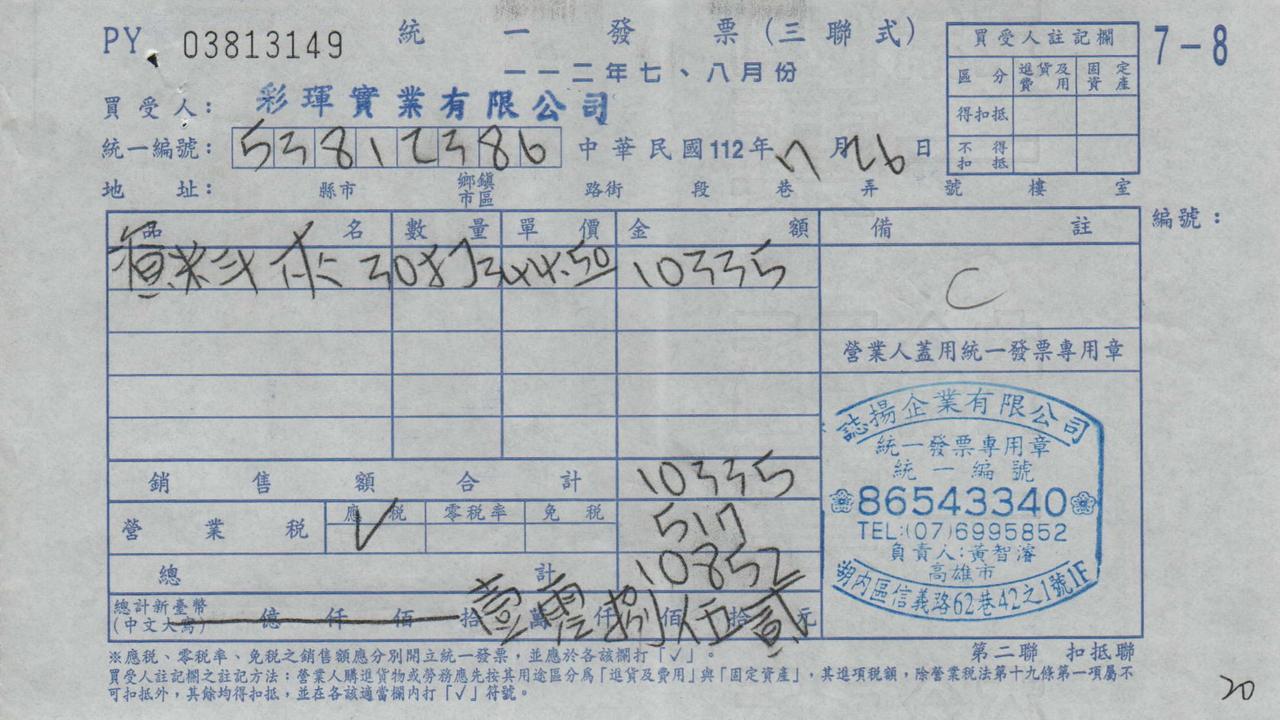 PY 03813149 統一發票(三聯式)
一一二年七、八月份
7-8
買受人註記欄
區分 進貨及費用 固定資產
得扣抵
不得扣抵
買受人: 彩琿實業有限公司
統一編號: 53812386 中華民國112年 7月26日
地址: 縣市 鄉鎮市區 路街 段 巷 弄 號 樓 室
品名 數量 單價 金額 備註 編號:
10335 C
營業人蓋用統一發票專用章
銷售額合計 10335
營業稅 應稅 ✓ 零稅率 免稅 517
總計 10852
總計新臺幣(中文大寫) 億 仟 佰 拾 壹 萬 零 仟 捌 佰 伍 拾 貳 元
誌揚企業有限公司
統一發票專用章
統一編號
86543340
TEL:(07)6995852
負責人:黃智濬
高雄市
湖內區信義路62巷42之1號1F
※應稅、零稅率、免稅之銷售額應分別開立統一發票,並應於各該欄打「✓」。
第二聯 扣抵聯
買受人註記欄之註記方法:營業人購進貨物或勞務應先按其用途區分為「進貨及費用」與「固定資產」,其進項稅額,除營業稅法第十九條第一項屬不
可扣抵外,其餘均得扣抵,並在各該適當欄內打「✓」符號。
20